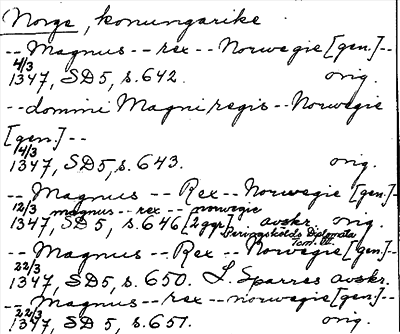 Norge, konungarike
-- Magnus -- rex -- Norwegie [gen.] --
4/3
1347, SD5, s. 642. orig.
-- domini Magni regis -- Norwegie
[gen.] --
14/3
1347, SD5, s. 643. orig.
-- Magnus -- Rex -- Norwegie [gen.] --
12/3 magnus -- rex -- norwegie
1347, SD5, s. 646 [2 ggr] avskr. orig.
Peringskiölds Diplomata
Tom. III.
-- Magnus -- Rex -- Norwegie [gen.] --
22/3
1347, SD5, s. 650. L. Sparres avskr.
-- Magnus -- rex -- norwegie [gen.] --
22/3
1347, SD5, s. 651. orig.